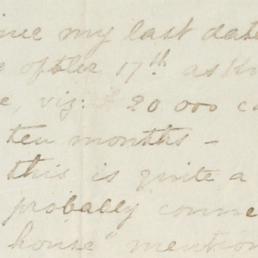 my last date
17th as
viz: 20 000
ten months -
this is quite a
probably conne
house" mention